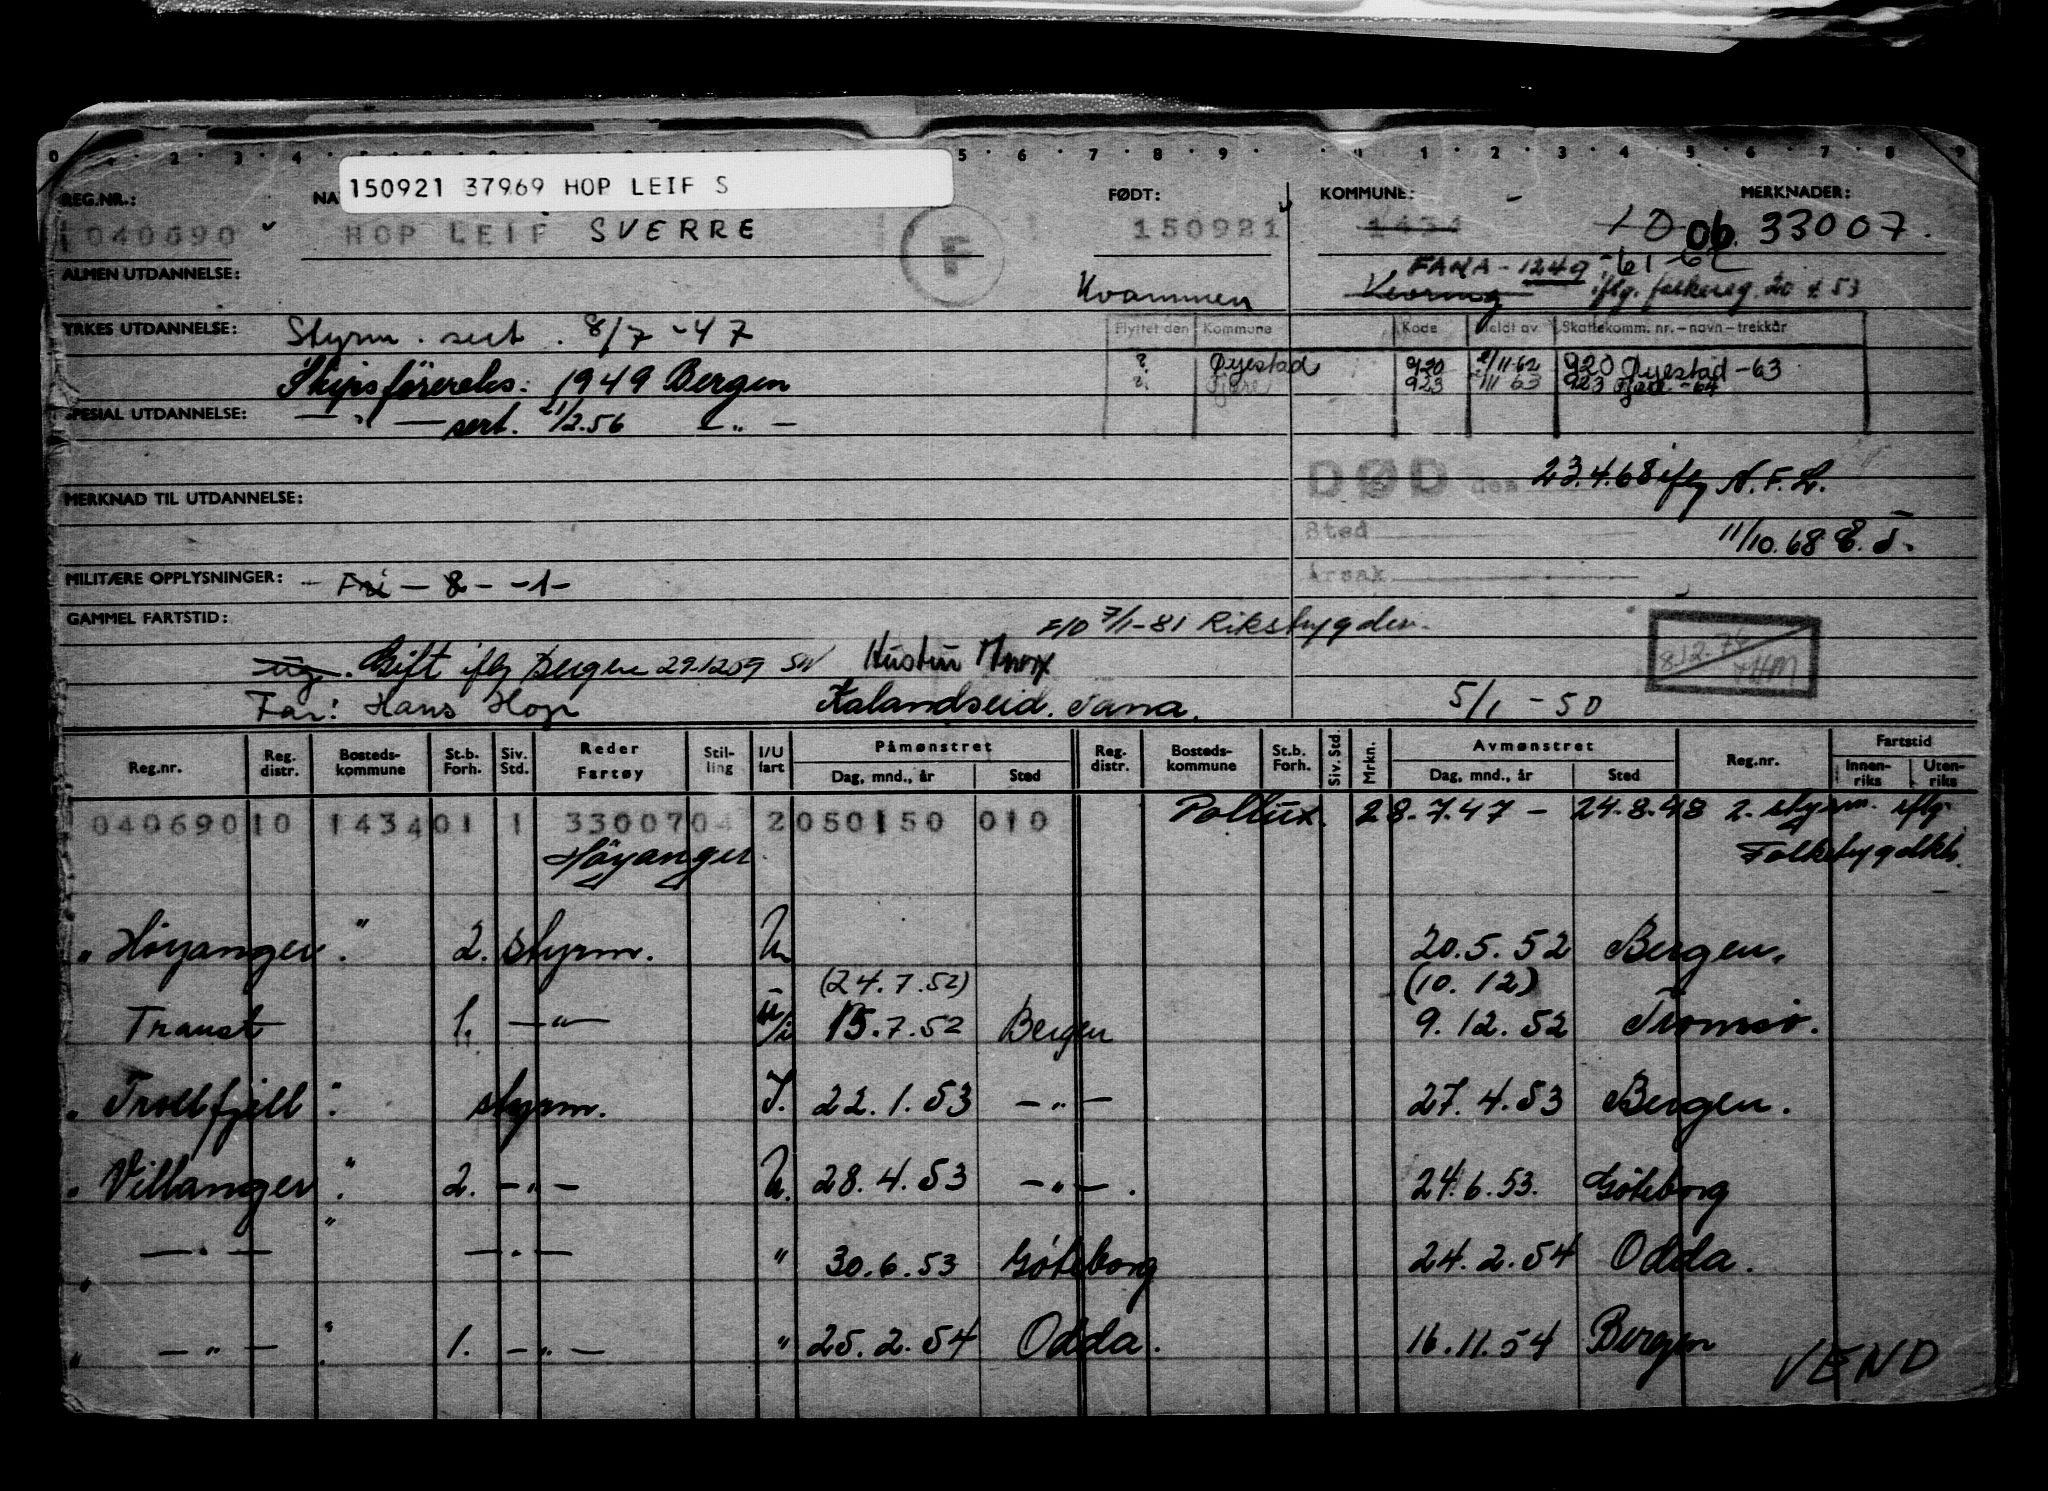 150921 37969 HOP LEIF S
REG.NR.: FØDT: KOMMUNE: MERKNADER:
040690 HOP LEIF SVERRE F 150921 1434 10 06. 33007.
ALMEN UTDANNELSE: Kvammen FANA - 1249 - 61-62
iflg. folkereg. 20 4 53
YRKES UTDANNELSE: Styrm. sert. 8/7 - 47 Flyttet den Kommune Kode Meldt av Skattekomm. nr. - navn - trekkår
? Øyestad 920 2/11-62 920 Øyestad - 63
Skipsförereks: 1949 Bergen ? Fjære 923 "/11 63 923 Fjære - 64
SPESIAL UTDANNELSE: — " — sert. 21/2.56 — " —
DØD den 23.4.68 iflg N.F.L.
MERKNAD TIL UTDANNELSE:
Sted 11/10.68
MILITÆRE OPPLYSNINGER: - Fri - 8 - -1- Årsak
GAMMEL FARTSTID: 7/1-81 Rikstrygden.
ug. Gift iflg Bergen 291209 SN 8.12.76
Far: Hans Hop Kalandseid. Fana. 5/1 - 50
Reg.nr. Reg. distr. Bosteds-kommune St.b. Forh. Siv. Std. Reder Fartøy Stil-ling I/U fart Påmønstret Dag, mnd., år Sted Reg. distr. Bosteds-kommune St.b. Forh. Siv. Std. Mrkn. Avmønstret Dag, mnd., år Sted Reg.nr. Fartstid Innen-riks Uten-riks
040690 10 1434 01 1 33007 04 2 050150 010 Pollux. 28.7.47 - 24.8.48 2. styrm. iflg.
Høyanger
" Høyanger " 2. styrm. U 20.5.52 Bergen.
(24.7.52) (10.12)
Traust 1. — " — U/i 15.7.52 Bergen 9.12.52 Tromsø.
" Trollfjell " styrm. I. 22.1.53 — " — 27.4.53 Bergen.
" Villanger " 2. — " — U. 28.4.53 — " — 24.6.53. Göteborg
" — " — " — " — " 30.6.53 Göteborg 24.2.54 Odda.
" — " — " 1. — " — " 25.2.54 Odda. 16.11.54 Bergen
VEND